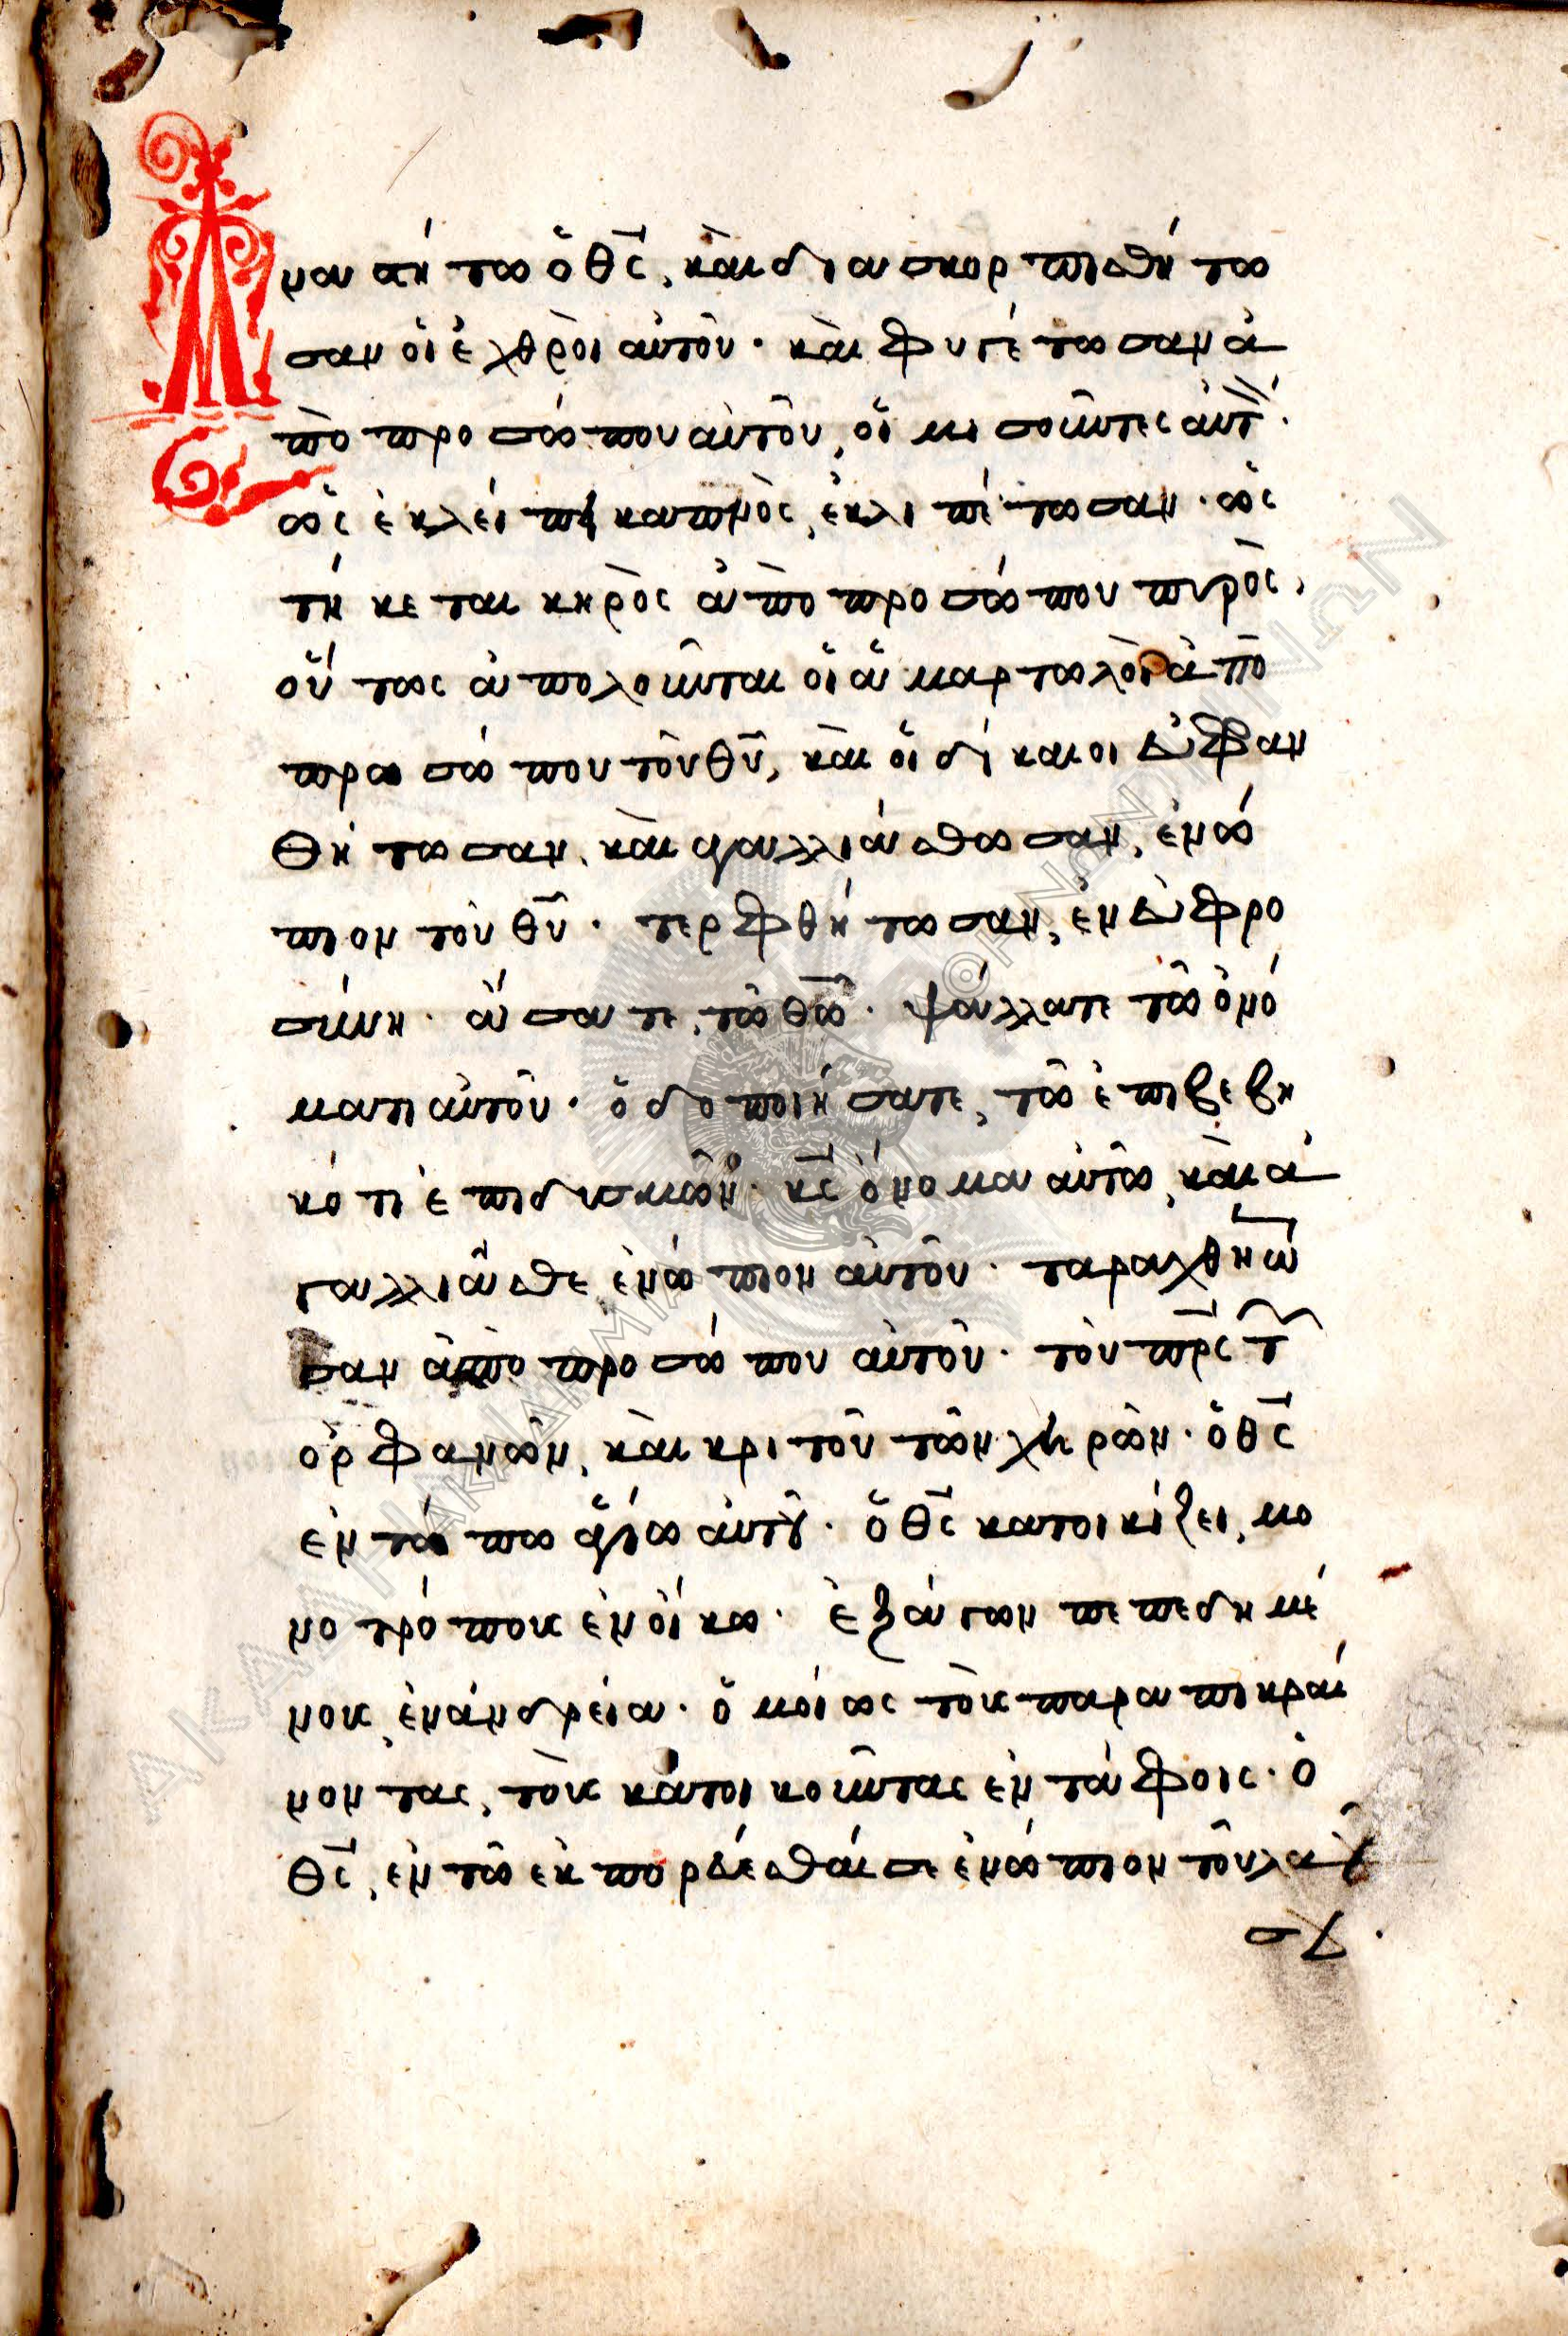 Ἀ
ναστήτω ὁ θς, καὶ διασκορπισθήτω
σαν οἱ ἐχθρὸι αὐτοῦ· καὶ φυγέτωσαν ἀ
πὸ προσώπου αὐτοῦ, οἱ μισοῦντες αὐτ̀·
ὡς ἐκλείπει καπνὸς, ἐκλιπέτωσαν· ὡς
τήκεται κηρὸς ἀπὸ προσώπου πυρὸς,
οὕτως ἀπολοῦνται οἱ ἁμαρτωλὸι ἀπὸ
προσώπου τοῦ θῦ, καὶ οἱ δίκαιοι εὐφραν
θήτωσαν, καὶ ἀγαλλιάσθωσαν, ἐνώ
πιον τοῦ θῦ· τερφθήτωσαν, ἐν εὐφρο
σύνη· ἄσατε, τῶ θῶ· ψάλλατε τῶ ὀνό
ματι αὐτοῦ· ὁδοποιήσατε, τῶ ἐπιβεβη
κότι ἐπι δυσμῶν· κς ὄνομα αὐτῶ, καὶ ἀ
γαλλιᾶσθε ἐνώπιον αὐτοῦ· ταραχθήτω
σαν ἀπὸ προσώπου αὐτοῦ· τοῦ πρς τ
ὀρφανῶν, καὶ κριτοῦ τῶν χηρῶν· ὁ θς
ἐν τόπω ἁγίω αὐτοῦ· ὁ θς κατοικίζει, μο
νοτρόπους ἐν οἴκω· ἐξάγων πεπεδημέ
νους, ἐν ἀνδρεία· ὁμοίως τοὺς παραπικραί
νοντας, τοὺς κατοικοῦντας ἐν τάφοις· ὁ
θς, ἐν τῶ ἐκπορεύεσθαί σε ἐνώπιον τοῦ λαοῦ
σου·
ΑΚΑΔΗΜΙΑ ΑΘΗΝΩΝ